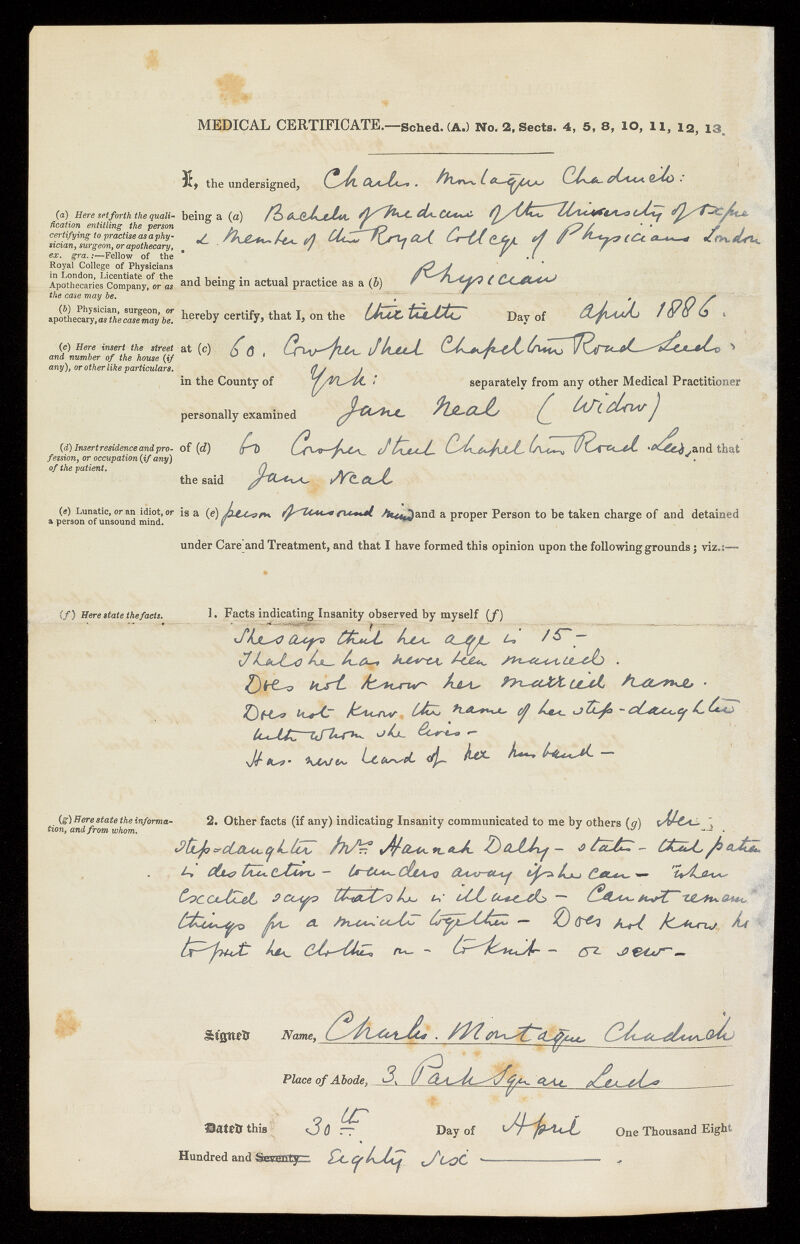 MEDICAL CERTIFICATE.—Sched. (A.) No. 2, Sects. 4, 5, 8, 10, 11, 12, 13.
I, the undersigned, Charles. Montague Chadwick:
(a) Here set forth the quali-
fication entitling the person
certifying to practise as a phy-
sician, surgeon, or apothecary,
ex. gra.:—Fellow of the
Royal College of Physicians
in London, Licentiate of the
Apothecaries Company, or as
the case may be.
being a (a) Bachelor of Medicine of the University of
& Member of the Royal College of Physicians London
and being in actual practice as a (b) Physician
(b) Physician, surgeon, or
apothecary, as the case may be.
hereby certify, that I, on the thirtieth Day of April 1886.
(c) Here insert the street
and number of the house (if
any), or other like particulars.
at (c) 60, Cowper Street Chapeltown Road Leeds
in the County of York: separately from any other Medical Practitioner
personally examined Jane Neal (Widow)
(d) Insert residence and pro-
fession, or occupation (if any)
of the patient.
of (d) 60 Cowper Street Chapeltown Road Leeds, and that
the said Jane Neal
(e) Lunatic, or an idiot, or
a person of unsound mind.
is a (e) person of unsound mind and a proper Person to be taken charge of and detained
under Care and Treatment, and that I have formed this opinion upon the following grounds; viz.:—
(f) Here state the facts.
1. Facts indicating Insanity observed by myself (f)
She says that her age is 15 –
That she has never been married.
Does not know her married name.
Does not know the name of her step-daughter
with whom she lives –
Has never heard of her husband –
(g) Here state the informa-
tion, and from whom.
2. Other facts (if any) indicating Insanity communicated to me by others (g) Her
step-daughter Mrs Hannah Dalby – states – that patien
is destructive – wanders away if she can – when
excited says that she is ill used – Cannot remem
things for a minute together – Does not know ho
to put her clothes on – to knit – or sew –
Signed Name, Charles. Montague Chadwick
Place of Abode, 3. Park Square Leeds
Dated this 30th Day of April One Thousand Eight
Hundred and Seventy Eighty Six